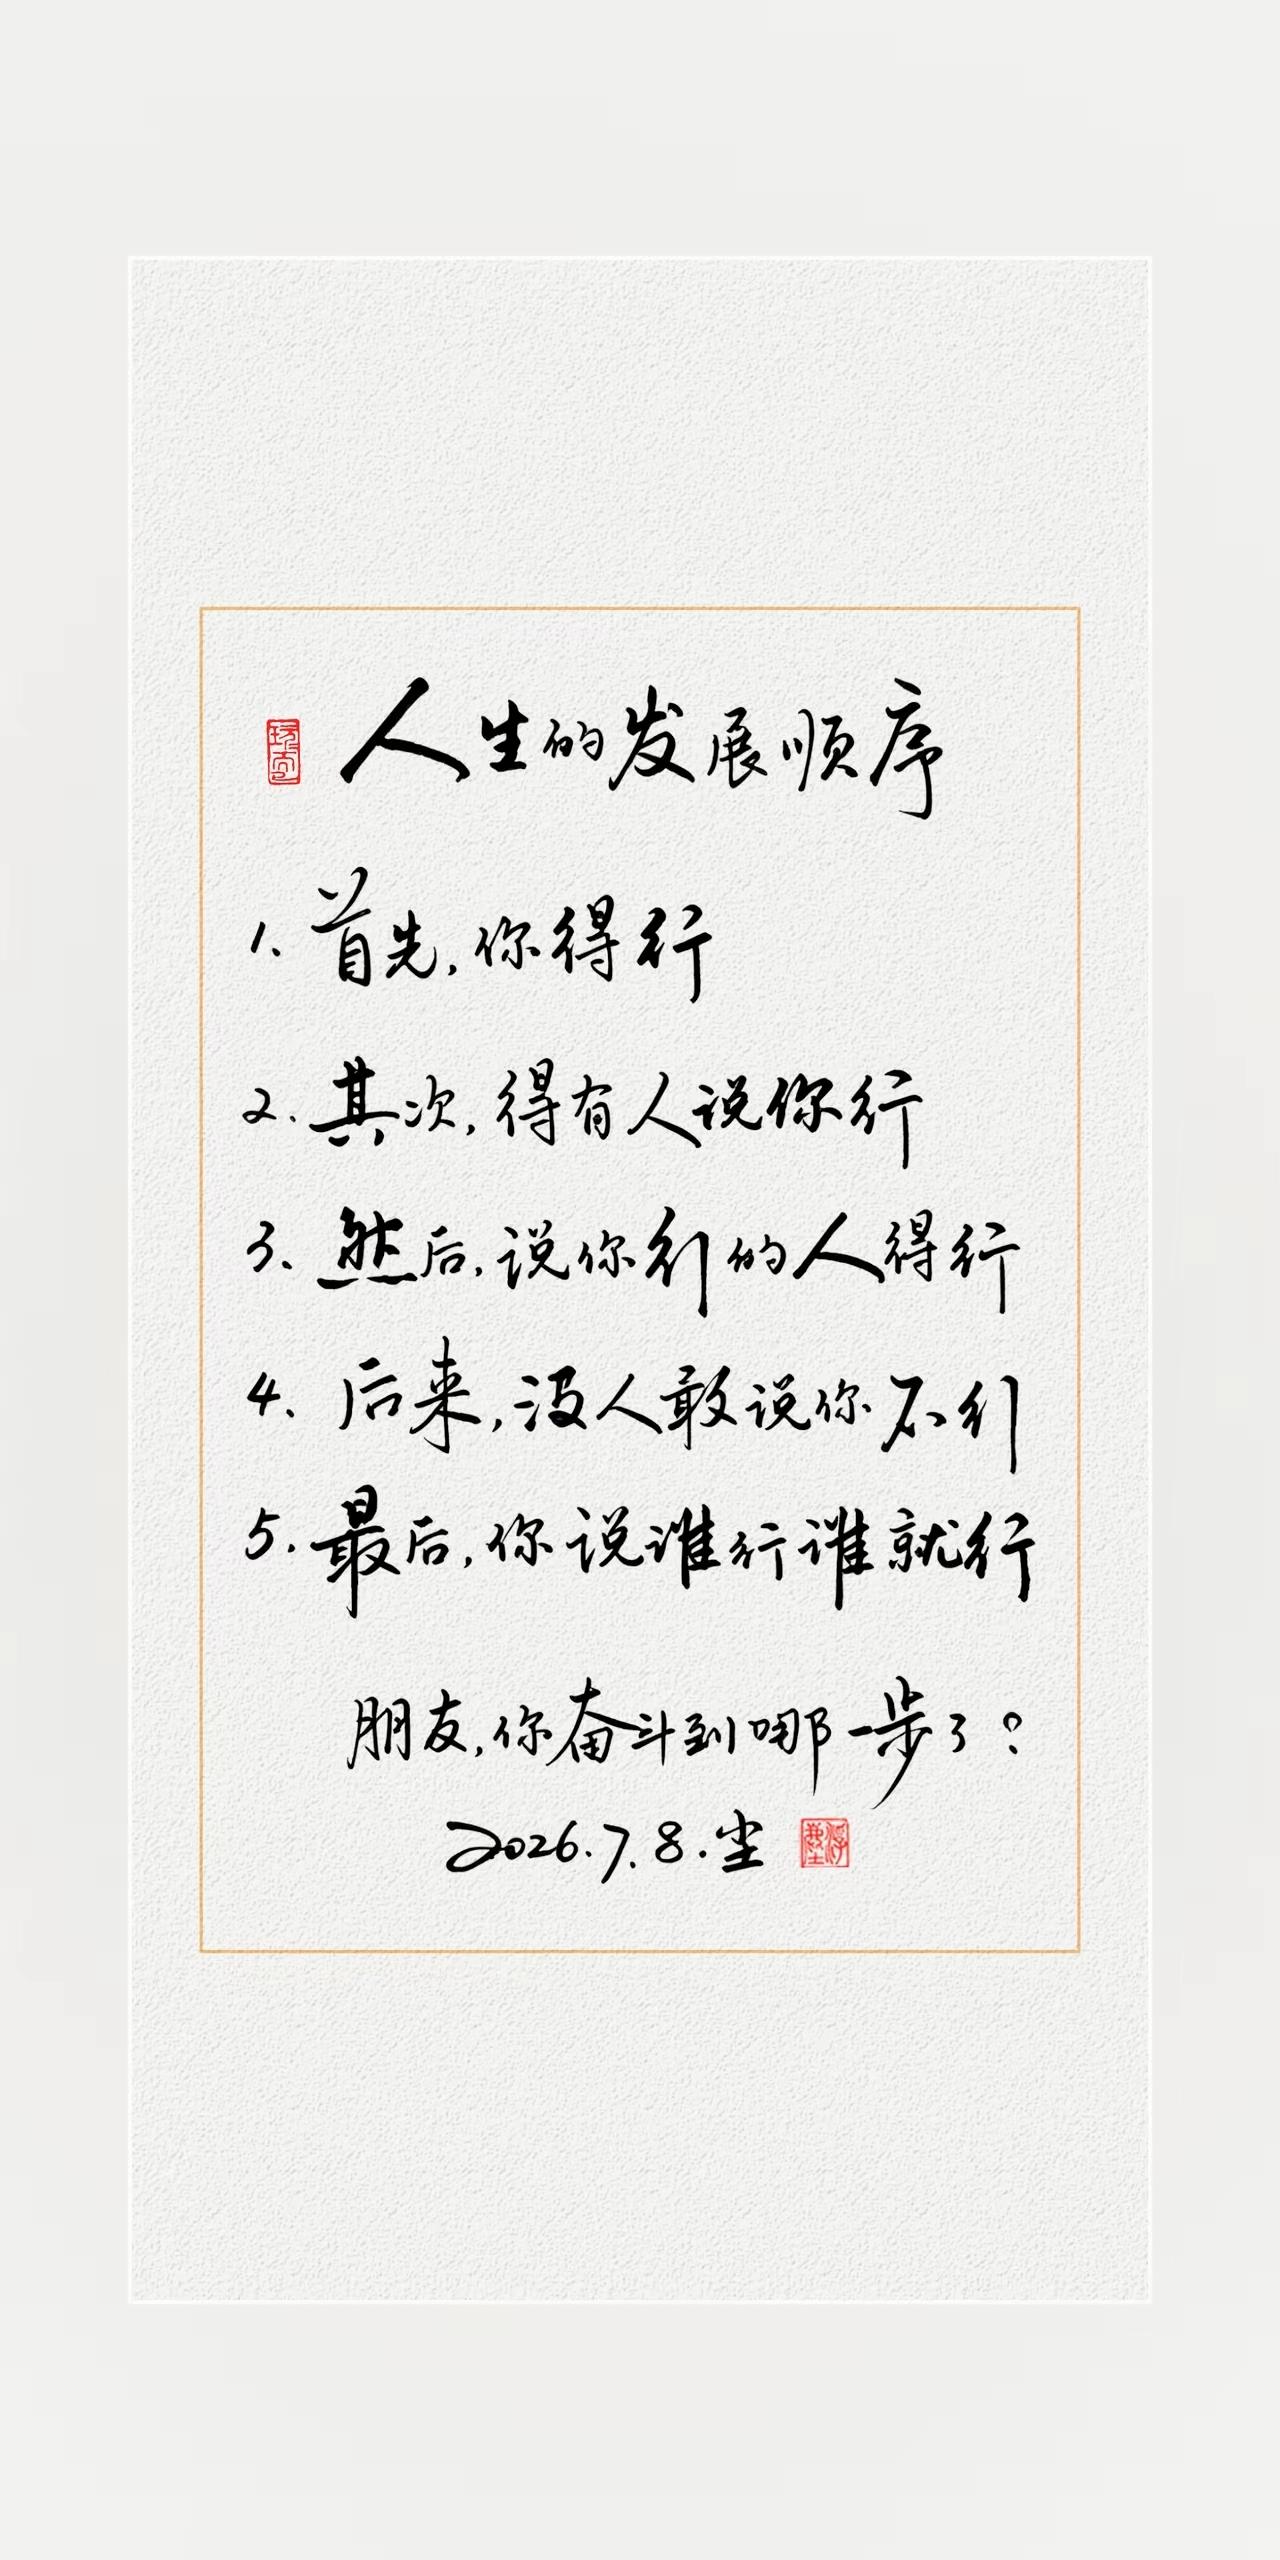 人生的发展顺序
1、首先,你得行
2.其次,得有人说你行
3、然后,说你行的人得行
4、后来,没人敢说你不行
5.最后,你说谁行谁就行
朋友,你奋斗到哪一步了?
2026.7.8.尘
浮塵